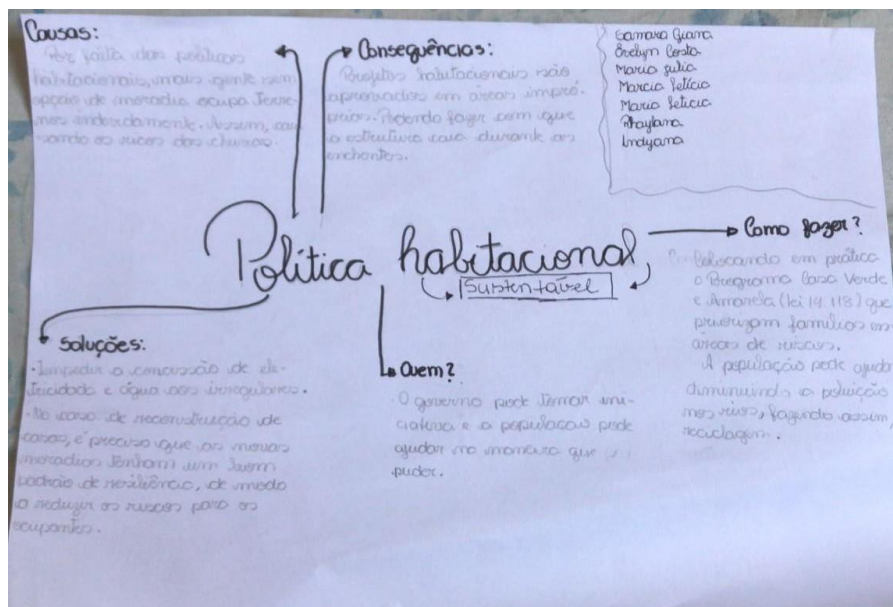 Causas:
Por falta das políticas
habitacionais, mais gente sem
opção de moradia ocupa terre-
nos indevidamente. Assim, cau
sando os riscos das chuvas.
Consequências:
Projetos habitacionais são
aprovados em áreas impró-
prias. Podendo fazer com que
a estrutura caia durante as
enchentes.
Samara
Evelyn Costa
Maria Julia
Marcia Letícia
Maria Leticia
Rhaylana
Indyana
Política habitacional
Sustentável
Como fazer?
Colocando em prática
o Programa Casa Verde
e Amarela (lei 14.118) que
priorizam famílias em
áreas de riscos.
A população pode ajuda
diminuindo a poluição
nos rios, fazendo assim,
reciclagem.
Soluções:
- Impedir a concussão de ele
tricidade e água aos irregulares.
- No caso de reconstrução de
casas, é preciso que as novas
moradias tenham um bom
padrão de resiliência, de modo
a reduzir os riscos para os
ocupantes.
Quem?
O governo pode tomar ini-
ciativa e a populacao pode
ajudar na maneira que
puder.